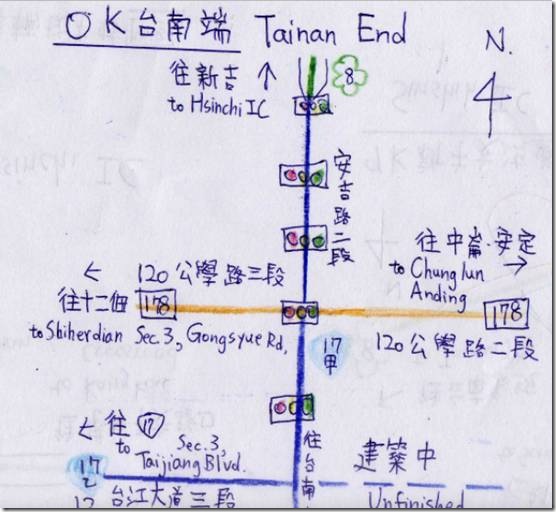 0K台南端 Tainan End
N.
往新吉 ↑
to Hsinchi IC
8
安吉路二段
往中崙·安定
to Chunglun →
Anding
← 120 公學路三段
往十二佃 178
178
to Shiherdian Sec.3, Gongsyue Rd.
120公學路二段
17
甲
← 往 17
to Sec.3,
Taijiang Blvd.
往台南
建築中
17
乙
12 台江大道三段
Unfinished